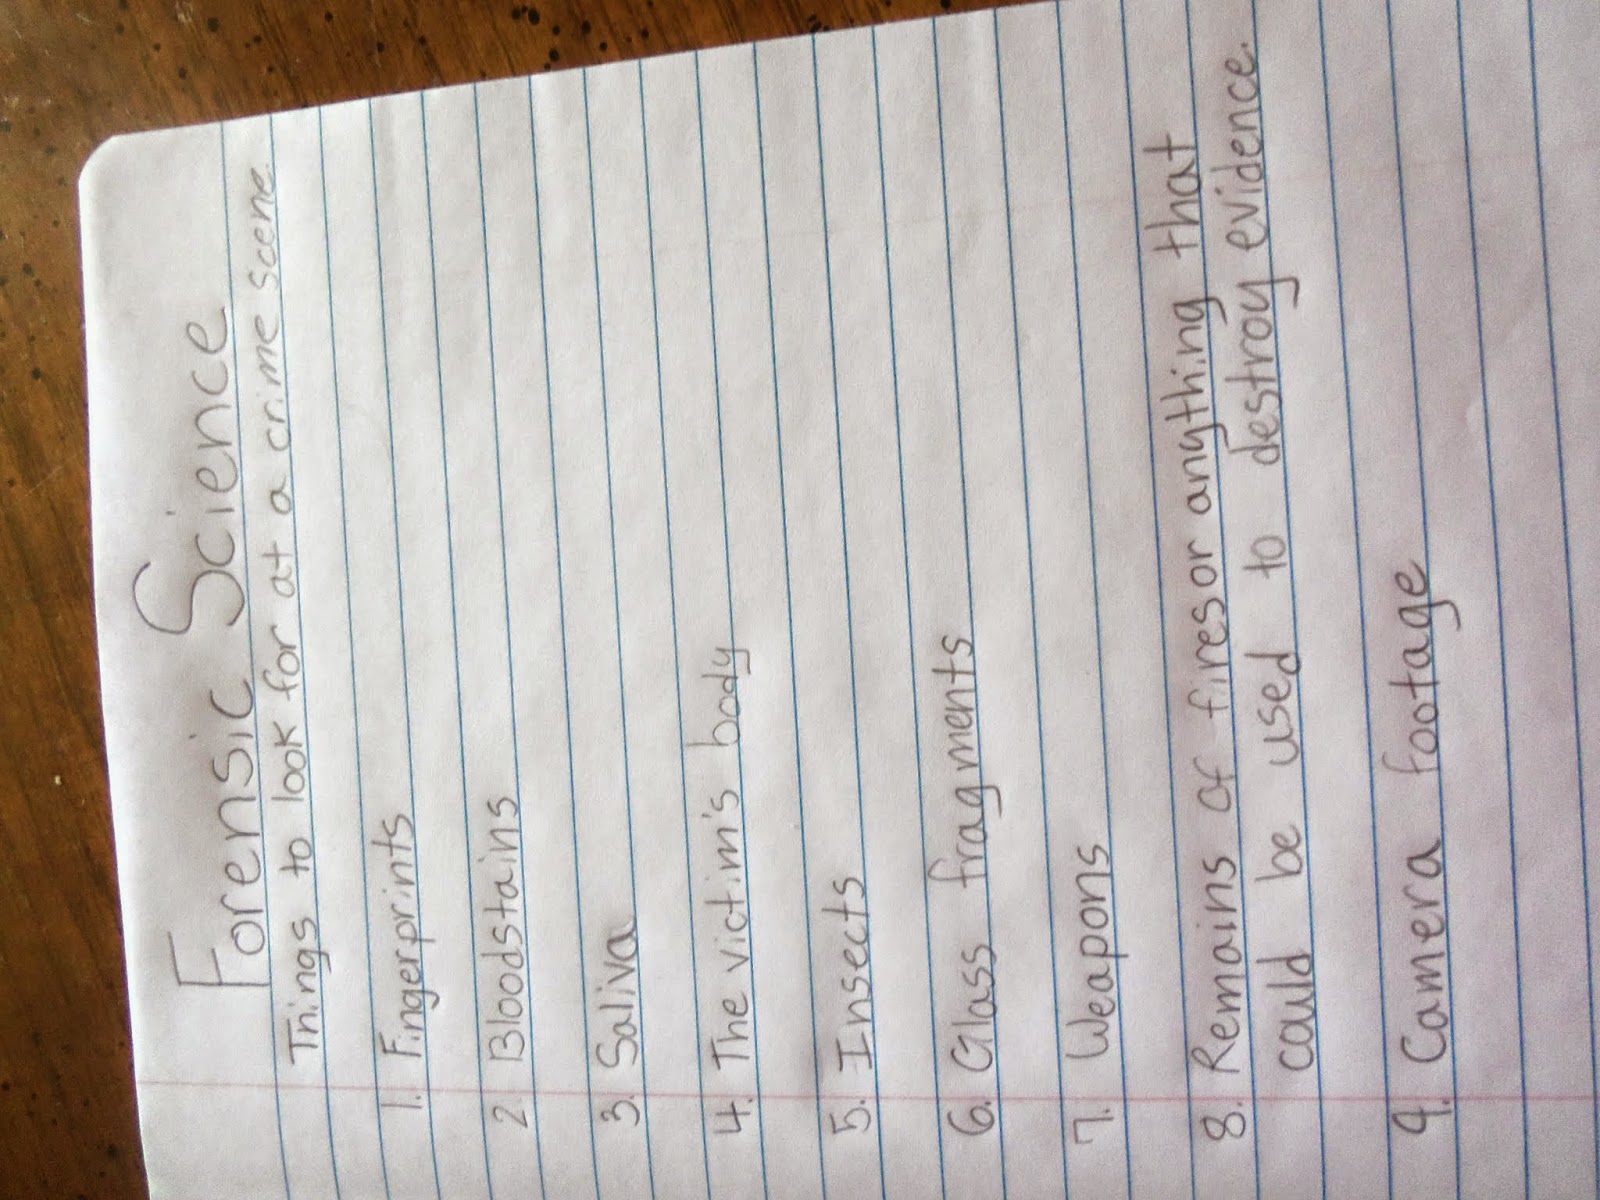 Forensic Science
Things to look for at a crime scene.
1. Fingerprints
2. Bloodstains
3. Saliva
4. The victim's body
5. Insects
6. Glass fragments
7. Weapons
8. Remains of fires or anything that
could be used to destroy evidence.
9. Camera footage